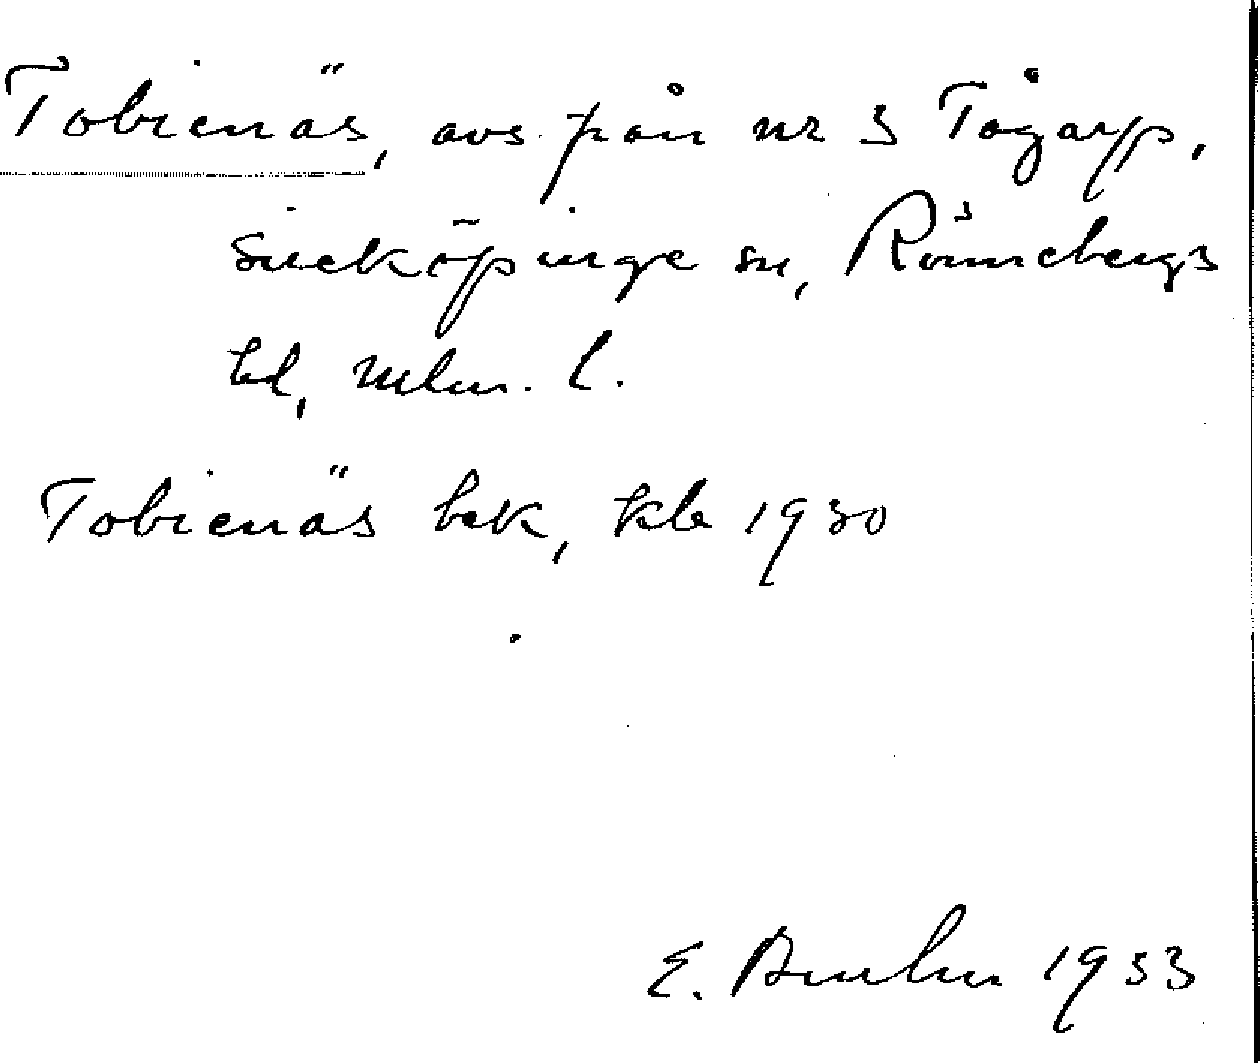 Tobienäs, avs. från nr 3 Tågarp,
Svenköpinge sn, Rönnebergs
hd, Mlm. l.
Tobienäs bek, kle 1930
E. 1933